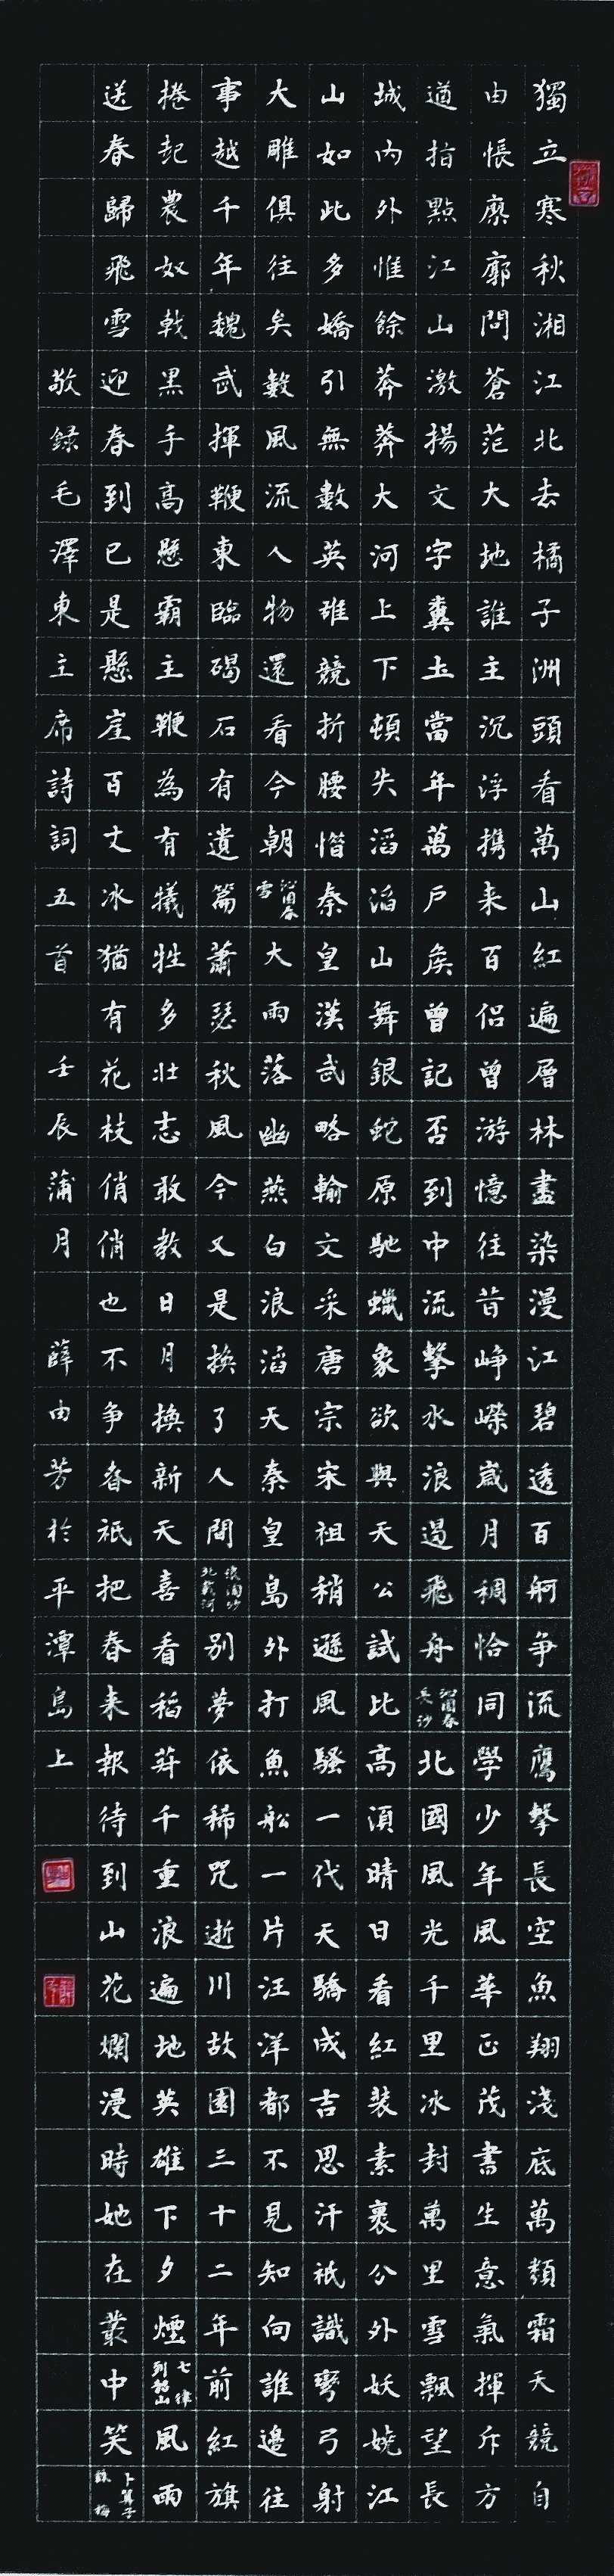 獨立寒秋湘江北去橘子洲頭看萬山紅遍層林盡染漫江碧透百舸爭流鷹擊長空魚翔淺底萬類霜天競自
由悵廖廓問蒼茫大地誰主沉浮携来百侣曾游憶往昔崢嶸歲月稠恰同學少年風華正茂書生意氣揮斥方
遒指點江山激揚文字糞土當年萬户矦曾記否到中流擊水浪遏飛舟沁園春長沙北國風光千里冰封萬里雪飄望長
城內外惟餘莽莽大河上下頓失滔滔山舞銀蛇原馳蠟象欲與天公試比高須晴日看紅裝素裹分外妖嬈江
山如此多嬌引無數英雄競折腰惜秦皇漢武略輸文采唐宗宋祖稍遜風騷一代天驕成吉思汗祇識彎弓射
大雕俱往矣數風流人物還看今朝沁園春雪大雨落幽燕白浪滔天秦皇島外打魚船一片汪洋都不見知向誰邊往
事越千年魏武揮鞭東臨碣石有遺篇蕭瑟秋風今又是換了人間浪淘沙北戴河別夢依稀咒逝川故園三十二年前紅旗
捲起農奴戟黑手高懸霸主鞭為有犧牲多壯志敢教日月換新天喜看稻菽千重浪遍地英雄下夕煙七律到韶山風雨
送春歸飛雪迎春到已是懸崖百丈冰猶有花枝俏俏也不爭春祇把春来報待到山花爛漫時她在叢中笑卜算子詠梅
敬録毛澤東主席詩詞五首 壬辰蒲月 薛由芳於平潭島上